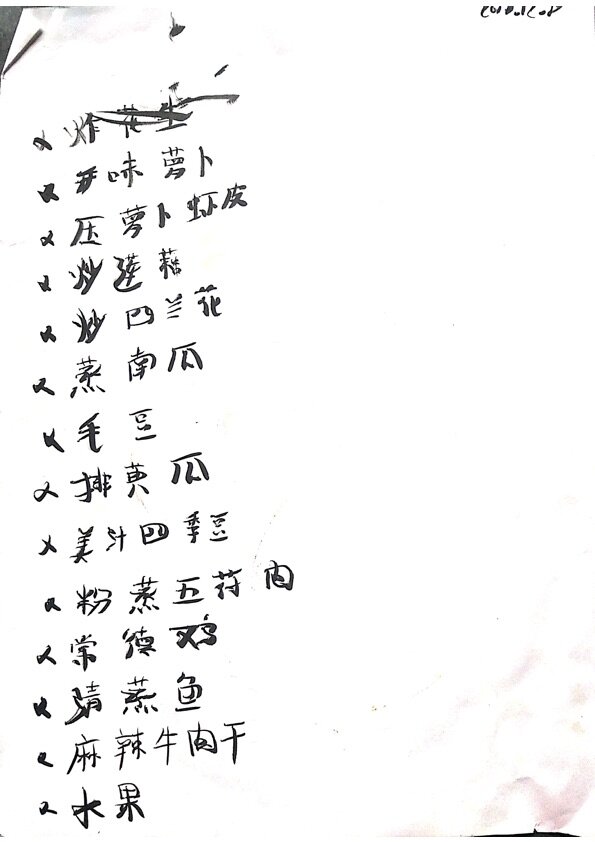 炸花生
味萝卜
压萝卜虾皮
炒莲藕
炒四兰花
蒸南瓜
毛豆
排黄瓜
美汁四季豆
粉蒸五荷肉
常德鸡
清蒸鱼
麻辣牛肉干
水果